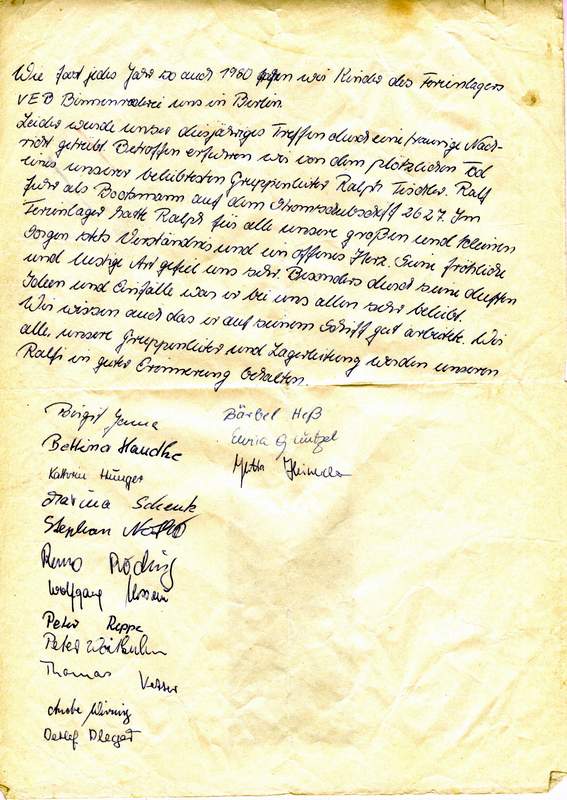 Wie fast jedes Jahr so auch 1980 trafen wir Kinder des Ferienlagers
VEB Binnenreederei uns in Berlin.
Leider wurde unser diesjähriges Treffen durch eine traurige Nach-
richt getrübt. Betroffen erfuhren wir von dem plötzlichen Tod
eines unserer beliebtesten Gruppenleiter Ralph Fischer. Ralf
fuhr als Bootsmann auf dem Stromschubschiff 2627. Im
Ferienlager hatte Ralph für alle unsere großen und kleinen
Sorgen stets Verständnis und ein offenes Herz. Seine fröhliche
und lustige Art gefiel uns sehr. Besonders durch seine duften
Ideen und Einfälle war er bei uns allen sehr beliebt.
Wir wissen auch das er auf seinem Schiff gut arbeitete. Wir
alle, unsere Gruppenleiter und Lagerleitung werden unseren
Ralf in guter Erinnerung behalten.
Birgit
Bettina Handke
Kathrin Hünger
Marina Schenk
Stephan
Remo Röding
Wolfgang
Peter Reppe
Peter
Thomas
Detlef Dlegat
Bärbel Heß